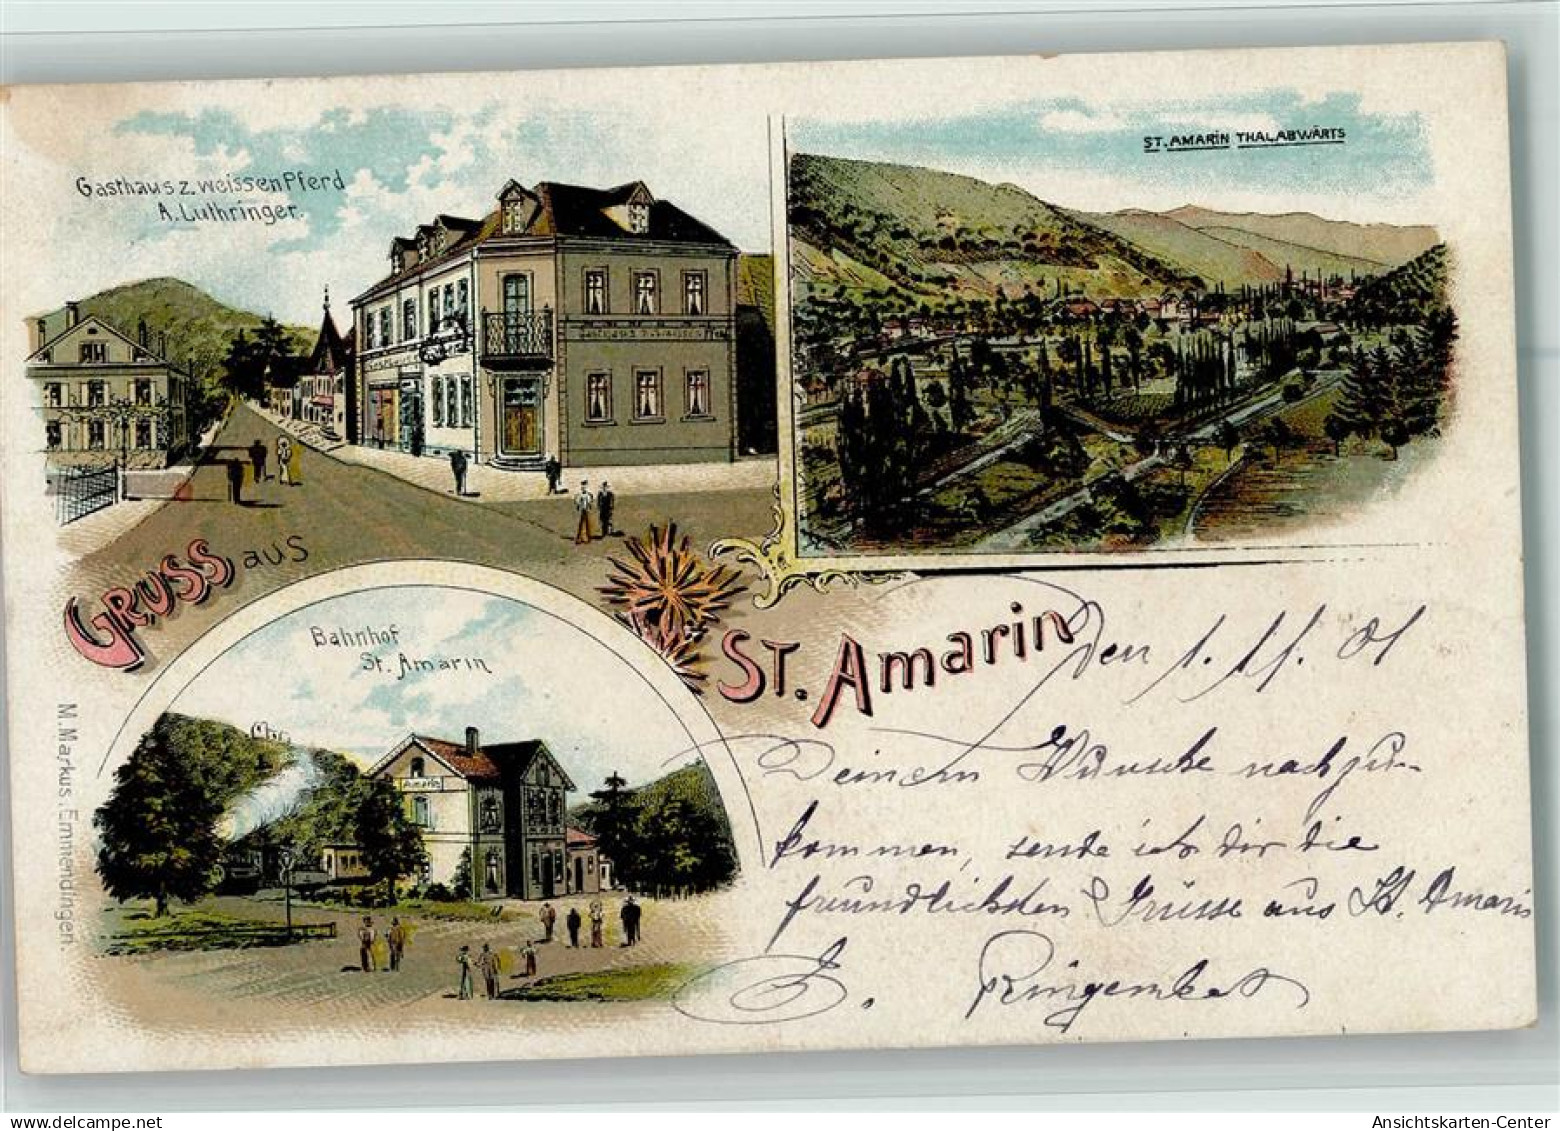 Gasthaus z. weissen Pferd
A. Luthringer.
ST. AMARIN THALABWÄRTS
GRUSS aus
ST. Amarin
Bahnhof
St. Amarin
M. Markus. Emmendingen.
Den 1. 11. 01
Deinem Wunsche nachzu-
kommen, sende ich dir die
freundlichsten Grüsse aus St. Amarin
Ansichtskarten-Center